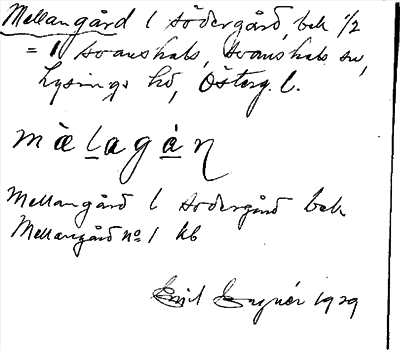 Mellangård l södergård, bek 1/2
= 1 Svanshals, Svanshals sn,
Lysings hd, Österg. l.
mὰlagάn
Mellangård l södergård bek
Mellangård no 1 kb
Emil 1929